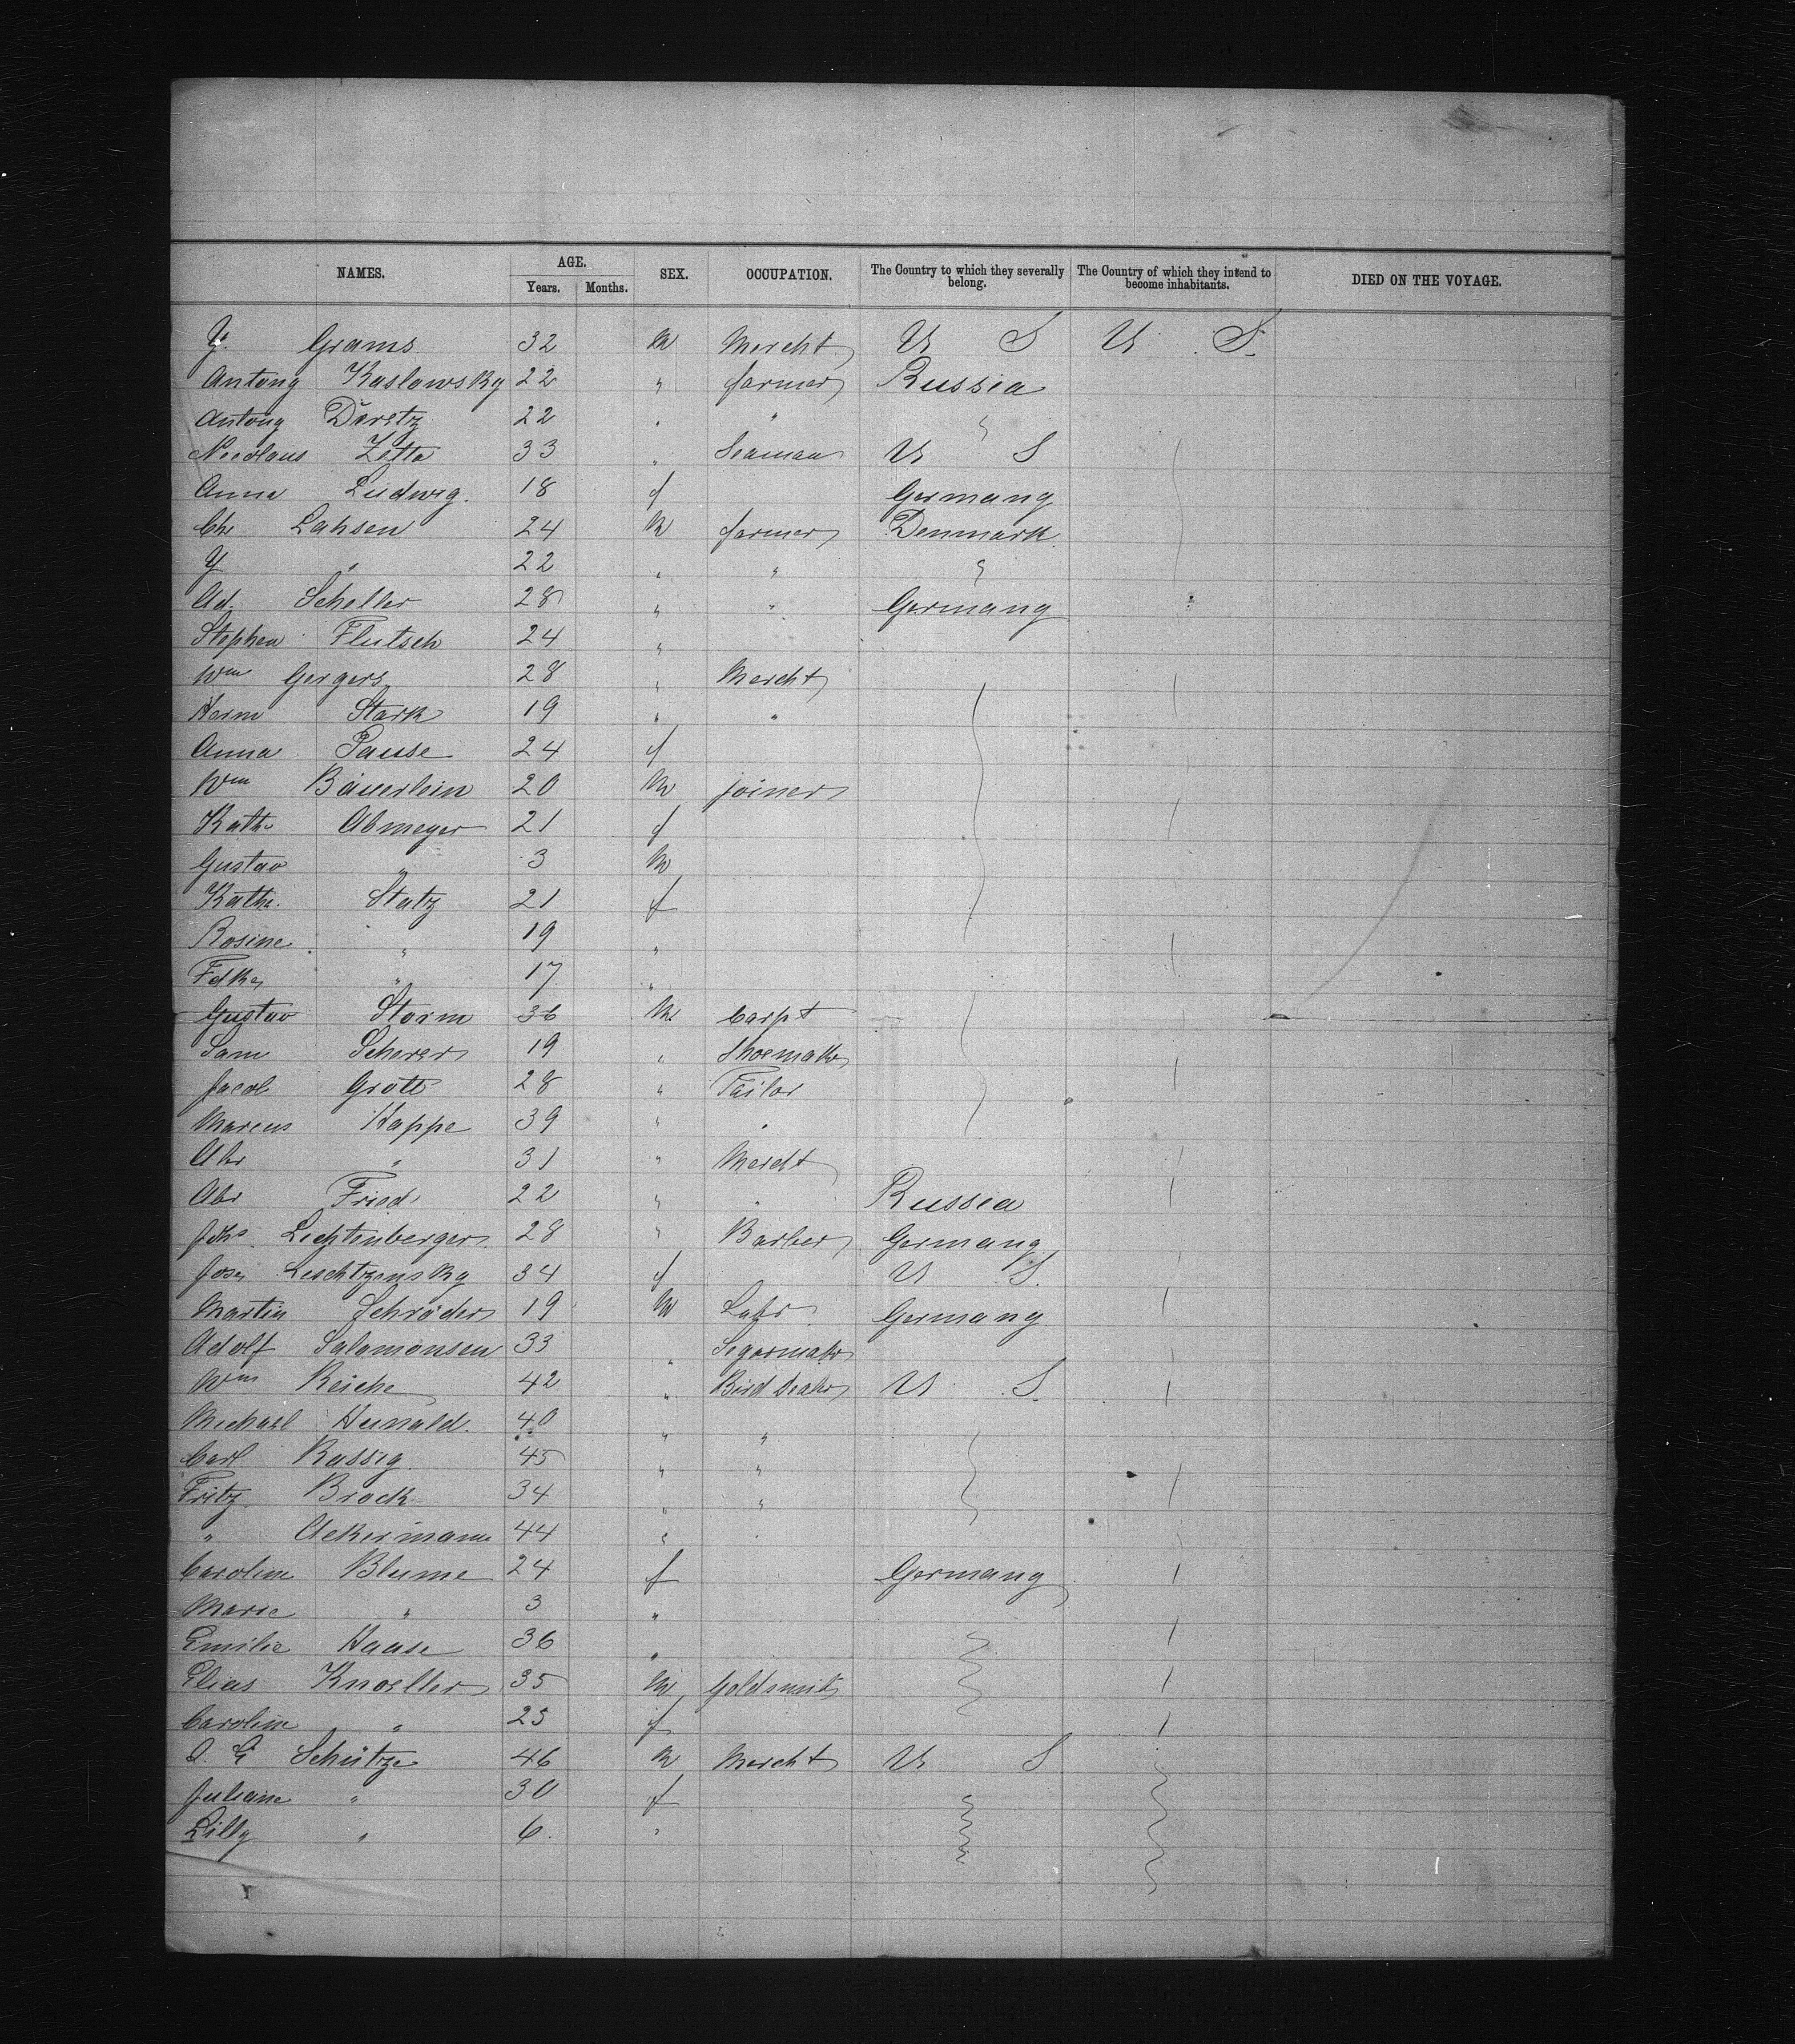 NAMES. AGE. SEX. OCCUPATION. The Country to which they severally belong. The Country of which they intend to become inhabitants. DIED ON THE VOYAGE.
Years. Months.
Y. Grams 32 m Mercht U S U S.
Antony Kaslowsky 22 " farmer Russia
Antony Daretz 22 " "
Nicolaus Zetta 33 " Seaman U S
Anna Ludwig. 18 f Germany
Chr Lahsen 24 m farmer Denmark
Y " 22 " " "
Ad. Scheller 28 " " Germany
Stephan Flutsch 24 "
Wm Gergers 28 " Mercht
Herm Stark 19 " "
Anna Pause 24 f
Wm Bäuerlein 20 m joiner
Kath Abmeyer 21 f
Gustav " 3 m
Kath. Statz 21 f
Rosine " 19 "
Fdke " 17 "
Gustav Storm 36 m Carpt
Sam Scherer 19 " Shoemakr
Jacob Grott 28 " Tailor
Marcus Kappe 39 " "
Abr " 31 " Mercht
Abr Fried 22 " " Russia
Johs. Lichtenberger 28 " Barber Germany
Jose Leschtzensky 34 f U S.
Martin Schröder 19 m Labr Germany
Adolf Salomonsen 33 " Segarmakr
Wm Reiche 42 " Bird Dealer U S.
Michael Hunald. 40 " "
Carl Rassig 45 " "
Fritz Brock 34 " "
" Ackermann 44 " "
Caroline Blume 24 f Germany
Marie " 3 "
Emilie Haase 36 "
Elias Knoeller 35 m Goldsmit
Caroline " 25 f
Schütze 46 m Mercht U S
Juliane " 30 f
Lilly " 6. "